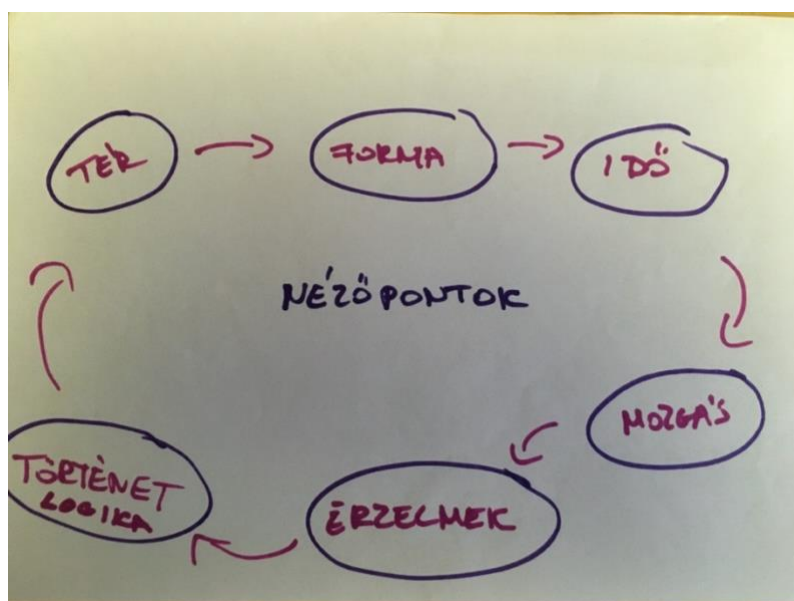 TÉR
FORMA
IDŐ
NÉZŐPONTOK
MOZGÁS
ÉRZELMEK
TÖRTÉNET
LOGIKA